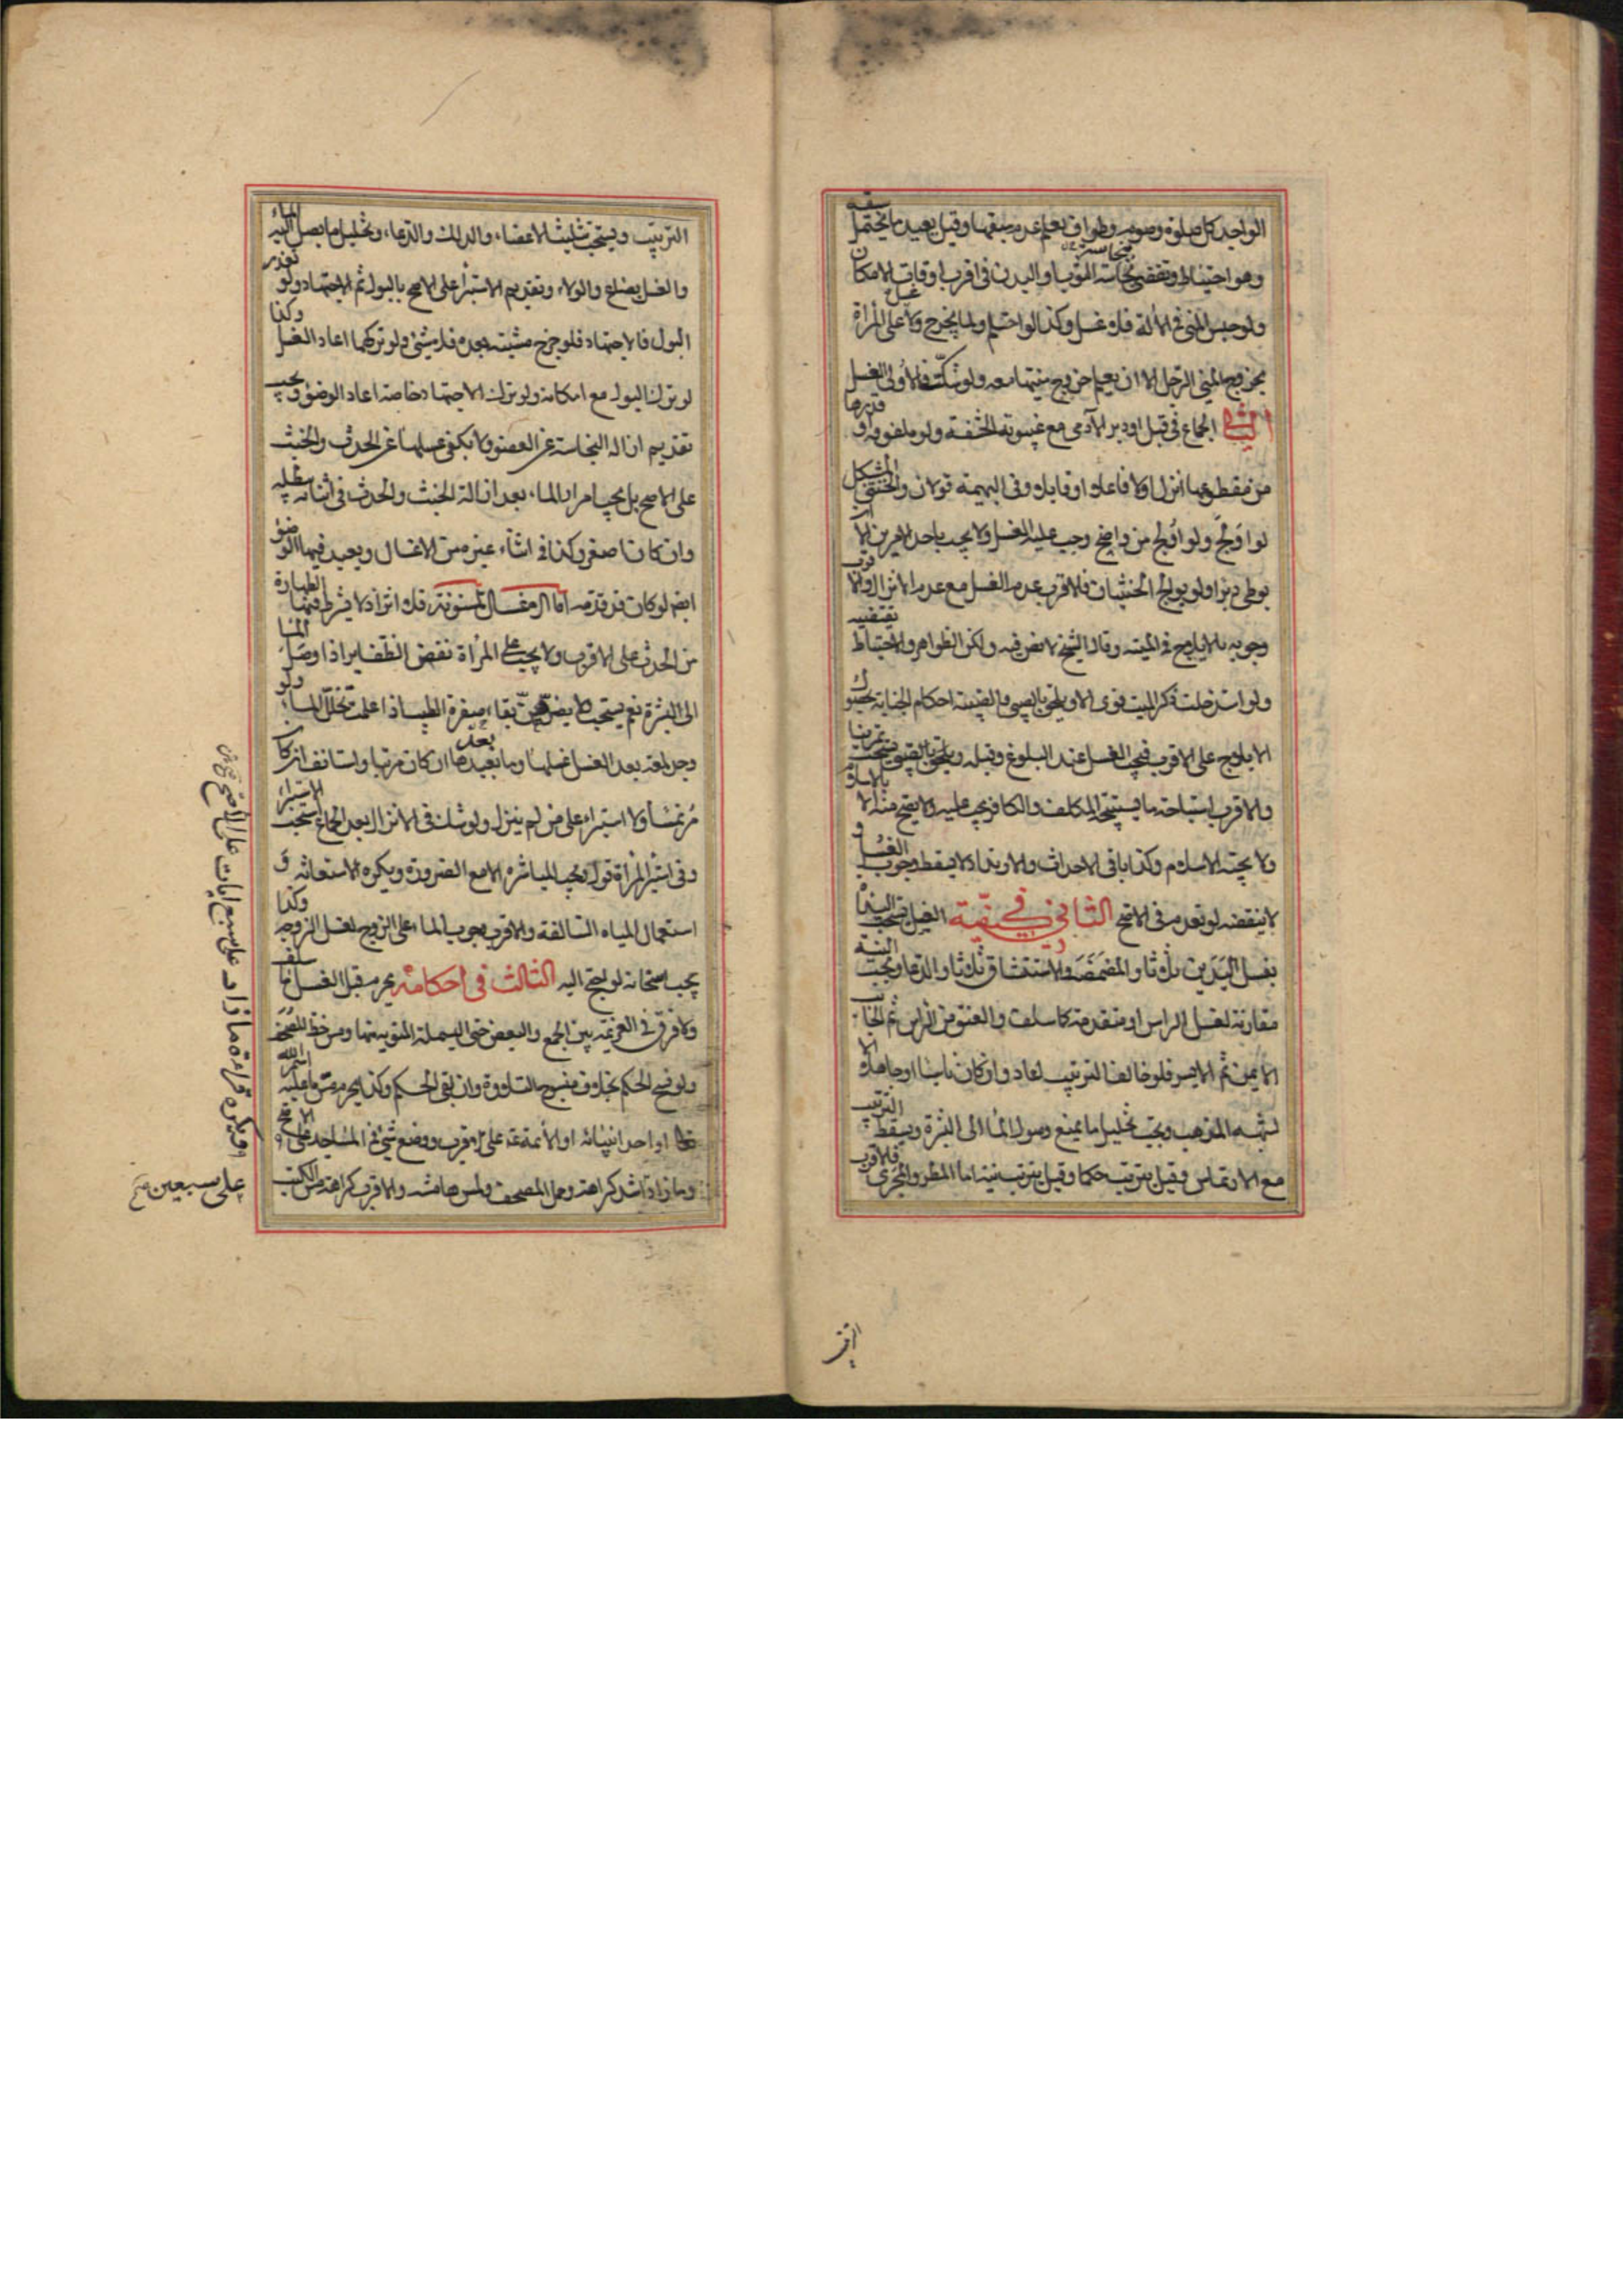 الواجد كل صلوة وصوم وطواف يعلم عدم سبقها وقيل يعيد ما يحتمل سبقه
وهو احتياط وتقضى نجاسة الثوب او البدن فى اقرب اوقات الامكان
ولو حبس المنى فى الآلة فلا غسل وكذا لو احتلم ولما يخرج ولا غسل على المرأة
بخروج المنى الرجل الا ان يعلم خروج منيها معه ولو شكت فالأولى الغسل
الثانى الجماع فى قبل او دبر الآدمى مع غيبوبة الحشفة ولو ملفوفة او قدرها
من مقطوعها انزل او لا فاعلا او قابلا وفى البهيمة قولان والخنثى المشكل
لو اولج ولو اولج من واضح وجب عليه الغسل ولا يجب باحد الامرين الا ان
يوطى دبرا ولو يوالج الخنثيان فالاقرب عدم الغسل مع عدم الانزال والاقرب
وجوبه بالايلاج فى الميتة وقال الشيخ لا نص فيه ولكن الظواهر والاحتياط تقتضيه
ولو استدخلت ذكر الميت قوى الاول ويلحق بالصبى والصبية احكام الجنابة بحصول
الايلاج على الاقرب فيجب الغسل عند البلوغ وقبله يستحب تمرينا
والاقرب استباحته ما يستبيحه المكلف والكافر يجب عليه ولا يصح منه الا بالاسلام
ولا يجبه الاسلام وكذا باقى الاحداث والارتداد لا يسقط وجوب الغسل و
لا ينقضه لو تعدمه فى الاصح الثانى فى كيفية الغسل يستحب البداة
بغسل اليدين ثلاثا والمضمضة والاستنشاق ثلاثا والدعا ويجب النية
مقارنة لغسل الراس او متقدمة كما سلف والعنق من الراس ثم الجانب
الايمن ثم الايسر فلو خالف الترتيب اعاد وان كان ناسيا او جاهلا الا
لشبهه المذهب ويجب تخليل ما يمنع وصول الماء الى البشرة ويسقط الترتيب
مع الارتماس وقيل يترتب حكما وقيل يترتب نية اما المطر والمجرى فالاقرب
التر
الترتيب ويستحب تثليث الاعضاء والدلك والدعاء وتخليل ما يصل اليه الماء
والغسل بصاع والولاء وتقديم الاستبرأ على الاصح بالبول ثم الاجتهاد ولو تعذر
البول فالاجتهاد فلو خرج مشتبه بعده فلا شىء ولو تركهما اعاد الغسل وكذا
لو ترك البول مع امكانه ولو ترك الاجتهاد خاصة اعاد الوضوء ويجب
تقديم ازالة النجاسة عن العضو ولا يكفى غسلها عن الحدث والخبث
على الاصح بل يجب امرار الماء بعد ازالة الخبث والحدث فى اثنائه مبطله
وان كان اصغر وكذا فى اثناء غيره من الاغسال ويعيد فيها الوضوء
ايضا لو كان قد قدمه اما الاغسال المسنونة فلا اثر اذ لا يشترط فيها الطهارة
من الحدث على الاقرب ولا يجب على المرأة نقض الظفاير اذا وصل الماء
الى البشرة نعم يستحب ولا يضرهن بقاء صفرة الطيب اذا علمت تخلل الماء ولو
وجد لمعة بعد الغسل غسلها وما بعدها ان كان مرتبا واستانف ان كان
مرتمسا ولا استبراء على من لم ينزل ولو شك فى الانزال بعد الجماع استحب الاستبراء
وفى استبراء المرأة قول ويجب المباشرة الا مع الضرورة ويكره الاستعانة و
استعمال المياه السالفة والاقرب وجوب الماء على الزوج لغسل الزوجة وكذا
يجب اسخانه لو احتج اليه الثالث فى احكامه يحرم قبل الغسل ما سلف
ولا فرق فى العزيمة بين الجمع والبعض حتى البسملة المنوية منها ومس خط المصحف
ولو نسخ الحكم بخلاف منسوخ التلاوة وان بقى الحكم وكذا يحرم مس ما عليه اسم الله
تعالى او احد انبيائه او الأئمة على الاقرب ووضع شىء فى المساجد على الاصح
وما زاد اشد كراهة وحمل المصحف ولمس هامشه والاقرب كراهة مس الكتب
ويكره قراءة ما زاد على سبع ايات على الاصح
على سبعين صح